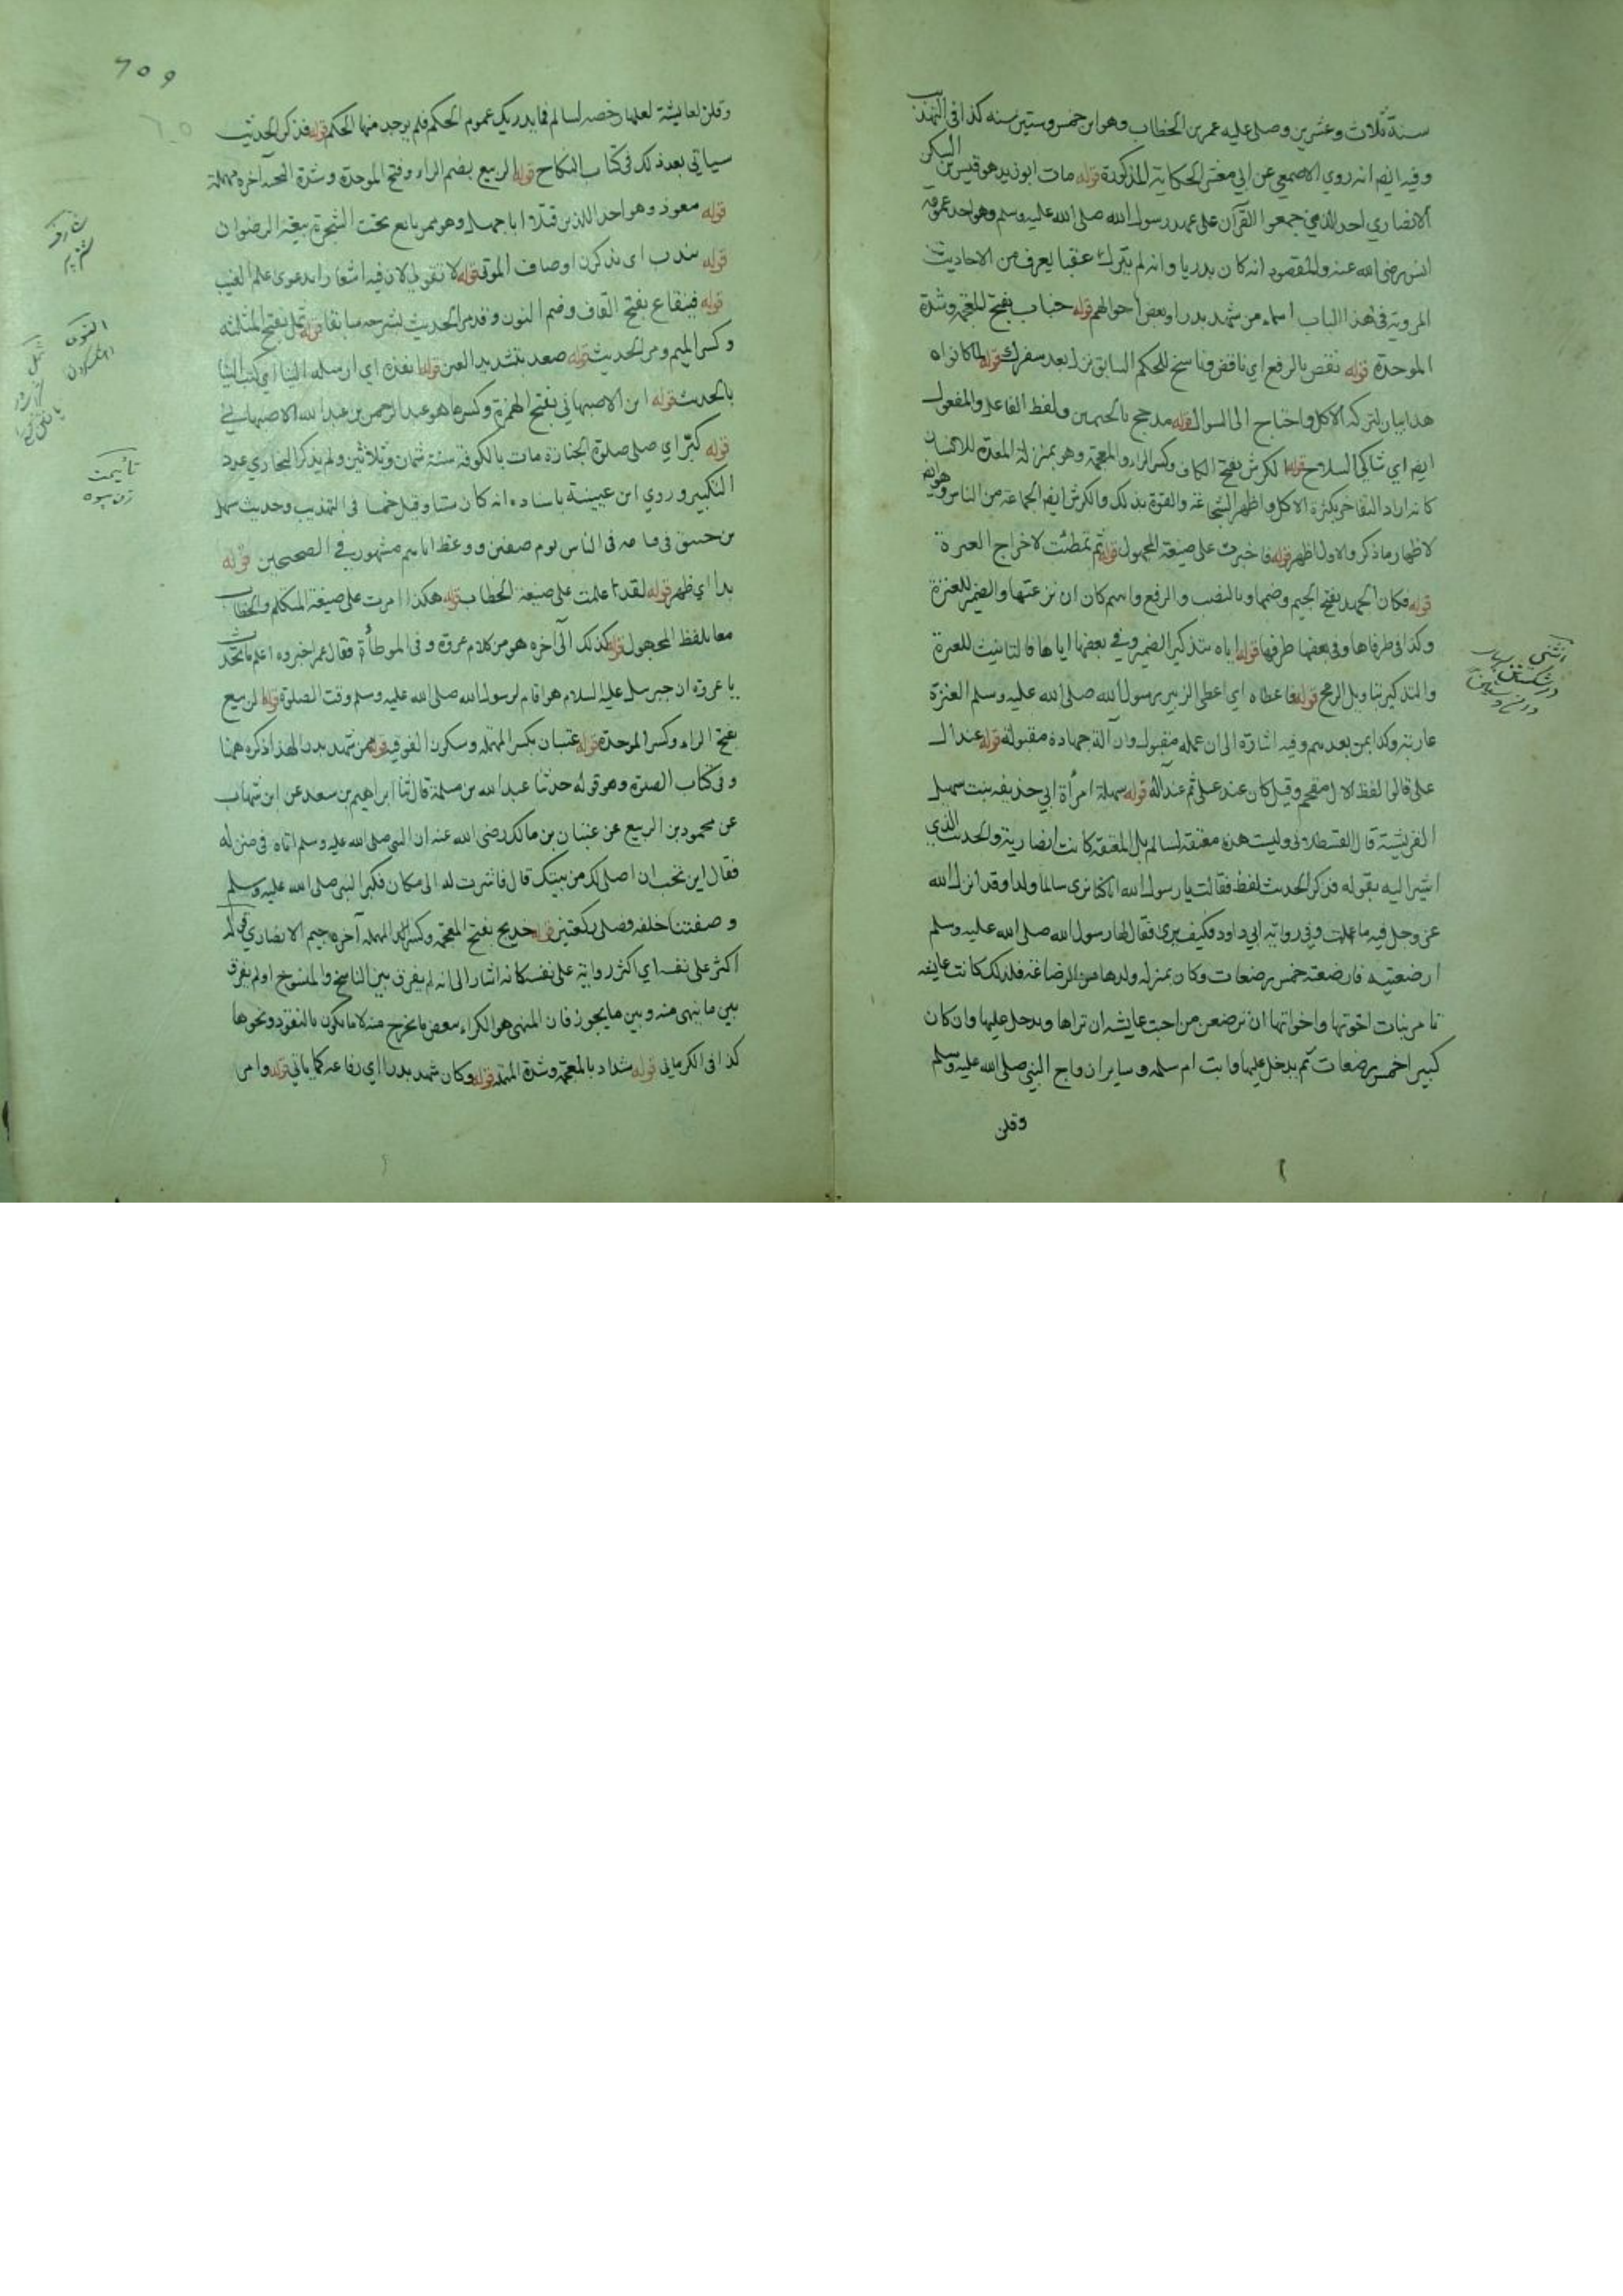 سنة ثلاث وعشرين وصلى عليه عمر بن الخطاب وهو ابن خمس وستين سنه كذا في التهذيب
وفيه ايضم انه روي الاصمعي عن ابي معشر الحكاية المذكورة قوله مات ابو زيد هو قيس بن السكن
الانصاري احد الذين جمعوا القرآن على عهد رسول الله صلى الله عليه وسلم وهو احد عمومة
انس رضى الله عنه والمقصود انه كان بدريا وانه لم يترك عقبا يعرف من الاحاديث
المروية في هذا الباب اسماء من شهد بدرا وبعض احوالهم قوله خباب بفتح المعجمه وشدة
الموحدة قوله نقض بالرفع اي ناقض وناسخ للحكم السابق نزل بعد سفرك قوله لما كانوا
هذا بيان لتركه الاكل واحتاج الى السوال قوله مدجج بالجيمين ولفظ الفاعل والمفعول
ايضم اي شاكي السلاح قوله الكرش بفتح الكاف وكسر الراء والمعجمة وهو بمنزلة المعدة للانسان
كانه اراد التفاخر بكثرة الاكل واظهر الشجاعة والقوة بذلك والكرش ايضم الجماعة من الناس وهو ايضم
لاظهار ما ذكر والاول اظهر قوله فاخبرت على صيغة المجهول قوله ثم تمطئت لاخراج العنزة
قوله فكان الجهد بفتح الجيم وضمها وبالنصب والرفع واسم كان ان نزعتها والضمير للعنزة
وكذا في طرفاها وفي بعضها طرفها قوله اياه بتذكير الضمير وفي بعضها اياها فالتانيث للعنزة
والتذكير بتاويل الرمح قوله فاعطاه اي اعطى الزبير رسول الله صلى الله عليه وسلم العنزة
عارية وكذا بمن بعدهم وفيه اشارة الى ان عمله مقبول وان آلة جهاده مقبولة قوله عند ال
علي قالوا لفظ الال مقحم وقيل كان عند علي ثم عند اله قوله سهلة امرأة ابي حذيفه بنت سهيل
القريشية قال القسطلاني وليست هذه معتقة لسالم بل المعتقة كانت انصارية والحديث الذي
اشير اليه بقوله فذكر الحديث لفظ فقالت يا رسول الله انا كنا نرى سالما ولدا وقد انزل الله
عز وجل فيه ما علمت وفي رواية ابي داود فكيف ترى فقال لها رسول الله صلى الله عليه وسلم
ارضعتيه فارضعته خمس رضعات وكان بمنزله ولدها من الرضاعة فلذلك كانت عايشه
تامر بنات اخوتها واخواتها ان ترضعن من احبت عايشه ان تراها ويدخل عليها وان كان
كبيرا خمس رضعات ثم يدخل عليها وابت ام سلمه وساير ازواج النبي صلى الله عليه وسلم
وقلن
وقلن لعايشة لعلها رخصه لسالم فما يدريك عموم الحكم فلم يوجد منها الحكم قوله فذكر الحديث
سياتي بعد ذلك في كتاب النكاح قوله الربيع بضم الراء وفتح الموحدة وشدة التحتيه آخره مهملة
قوله معوذ وهو احد الذين قتلوا ابا جهل وهو ممن بايع تحت الشجرة بيعة الرضوان
قوله يندب اي يذكرن اوصاف الموتى قوله لا تقولي لان فيه اشعارا بدعوى علم الغيب
قوله قينقاع بفتح القاف وضم النون وقد مر الحديث بشرحه سابقا قوله ثمل بفتح المثلثه
وكسر الميم ومر الحديث قوله صعد بتشديد العين قوله انفذه اي ارسله الينا اي كتب الينا
بالحديث قوله ابن الاصبهاني بفتح الهمزة وكسرها هو عبد الرحمن بن عبد الله الاصبهاني
قوله كبر اي صلى صلوة الجنازة مات بالكوفة سنة ثمان وثلاثين ولم يذكر البخاري عدد
التكبير وروي ابن عيينة باسناده انه كان ستا وقيل خمسا في التهذيب وحديث سهل
بن حنيف في قيامه في الناس يوم صفين ووعظ اياهم مشهور في الصحيحين قوله
بدا اي ظهر قوله لقد علمت على صيغة الخطاب قوله هكذا امرت على صيغة المتكلم والخطاب
معا بلفظ المجهول قوله كذلك الى آخره هو من كلام عروة وفي الموطأة فقال عمر اخبروه اعلم ما تحدث
يا عروة ان جبرسل عليه السلام هو اقام لرسول الله صلى الله عليه وسلم وقت الصلوة قوله الربيع
بفتح الراء وكسر الموحدة قوله عتبان بكسر المهمله وسكون الفوقيه قوله ممن شهد بدرا لهذا ذكره ههنا
وفي كتاب الصلوة وهو قوله حدثنا عبد الله بن مسلمة قال ثنا ابراهيم بن سعد عن ابن شهاب
عن محمود بن الربيع عن عتبان بن مالك رضى الله عنه ان النبي صلى الله عليه وسلم اتاه في منزله
فقال اين تحب ان اصلي لك من بيتك قال فاشرت له الى مكان فكبر النبي صلى الله عليه وسلم
وصففنا خلفه فصلى ركعتين قوله خديج بفتح المعجمة وكسر الدال المهمله آخره جيم الانصاري قوله
اكثر على نفسه اي اكثر رواية على نفسه كانه اشار الى انه لم يفرق بين الناسخ والمنسوخ او لم يفرق
بين ما نهى منه وبين ما يجوز فان المنهي هو الكراء ببعض ما يخرج منه لا ما يكون بالنقود ونحوها
كذا في الكرماني قوله شداد بالمعجمة وشدة المهملة قوله وكان شهد بدرا اي رفاعة كما ياتي قوله وامر